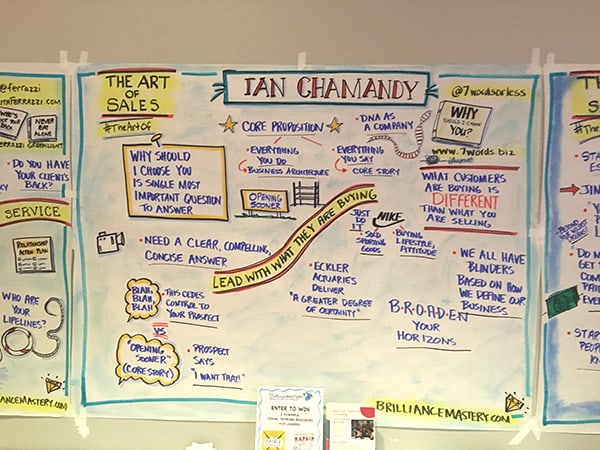 @ferrazzi
ITHFERRAZZI.COM
WHO'S
GOT YOUR
BACK
NEVER
EAT
ALONE
GREENLIGHT
• DO YOU HAVE
YOUR CLIENT'S
BACK?
SERVICE
RELATIONSHIP
ACTION PLAN
WHO ARE
YOUR
LIFELINES?
LIANCEMASTERY.COM
THE ART OF
SALES
#TheArtOf
IAN CHAMANDY
@7wordsorless
WHY
SHOULD I CHOOSE
YOU?
www.7words.biz
WHY SHOULD
I CHOOSE YOU
IS SINGLE MOST
IMPORTANT QUESTION
TO ANSWER
CORE PROPOSITION
• EVERYTHING
YOU DO
BUSINESS ARCHITECTURE
• EVERYTHING
YOU SAY
CORE STORY
• DNA AS
A COMPANY
OPENING
SOONER
WHAT CUSTOMERS
ARE BUYING IS
DIFFERENT
THAN WHAT YOU
ARE SELLING
LEAD WITH WHAT THEY ARE BUYING
JUST
DO
IT
NIKE
• SOLD
SPORTING
GOODS
• BUYING
LIFESTYLE,
ATTITUDE
• NEED A CLEAR, COMPELLING,
CONCISE ANSWER
BLAH,
BLAH,
BLAH
• THIS CEDES
CONTROL TO
YOUR PROSPECT
VS
"OPENING
SOONER"
(CORE STORY)
• PROSPECT
SAYS
"I WANT THAT!"
• ECKLER
ACTUARIES
DELIVER
"A GREATER DEGREE
OF CERTAINTY"
B•R•O•A•D•E•N
YOUR
HORIZONS
• WE ALL HAVE
BLINDERS
BASED ON HOW
WE DEFINE OUR
BUSINESS
BRILLIANCEMASTERY.COM
ENTER TO WIN
TH
S
#The
• STA
ES
JIN
DO N
GET
CO
PA
EVE
STAR
PEOP
KN